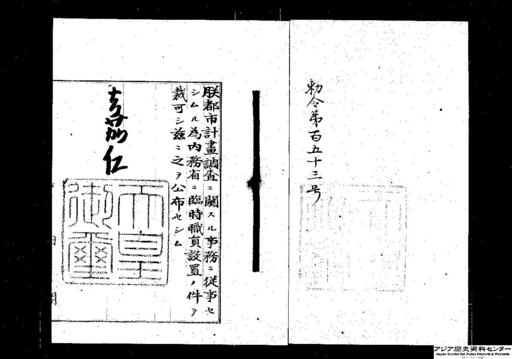 勅令第百五十三号
朕都市計畫調査ニ關スル事務ニ從事セ
シムル為内務省ニ臨時職員設置ノ件ヲ
裁可シ茲ニ之ヲ公布セシム
嘉仁
天皇
御璽
アジア歴史資料センター
Japan Center for Asian Historical Records